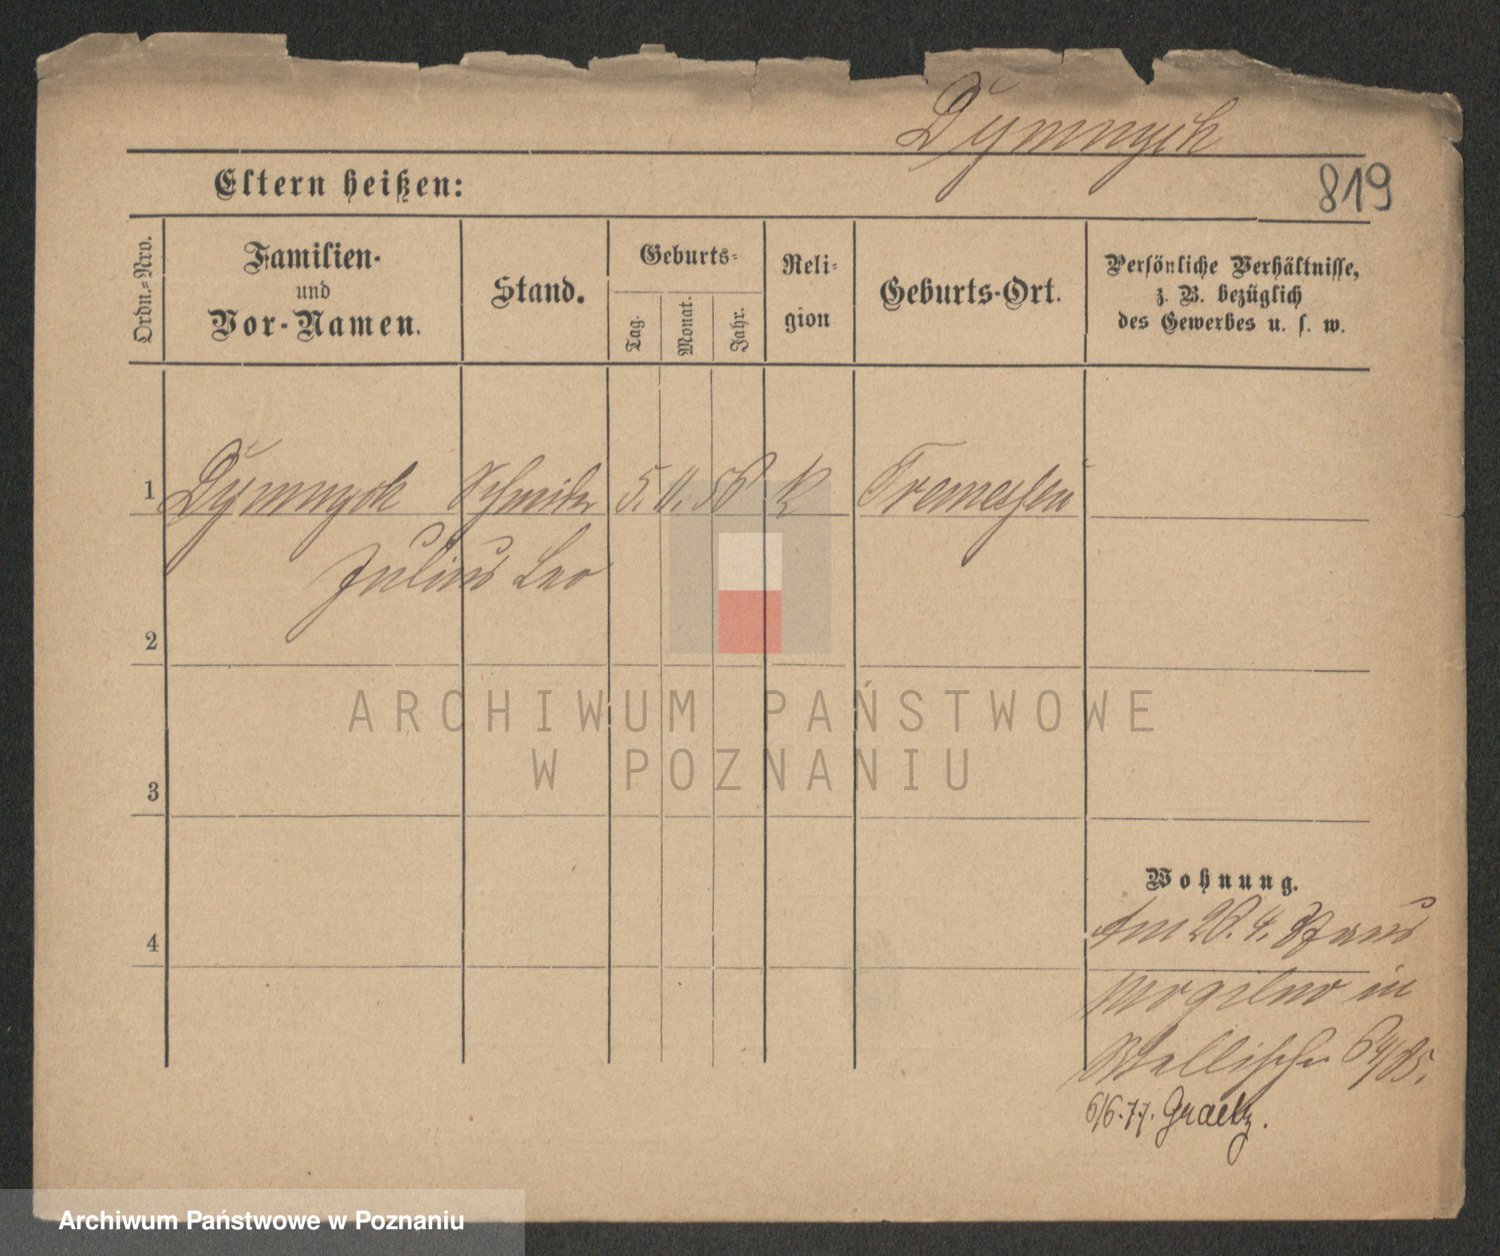 Dymnych
Eltern heißen:
819
Ordn.-Nro.
Familien-
und
Vor-Namen.
Stand.
Geburts-
Tag.
Monat.
Jahr.
Reli-
gion
Geburts-Ort.
Persönliche Verhältnisse,
z. B. bezüglich
des Gewerbes u. s. w.
1 Schneider 5. 11. 56 K Tremessen
Julius Leo
2
3
4
Wohnung.
Am 28. 4. aus
Mogilno in
Wallischei 64/85.
6/6.77. Graetz.
ARCHIWUM PAŃSTWOWE
W POZNANIU
Archiwum Państwowe w Poznaniu